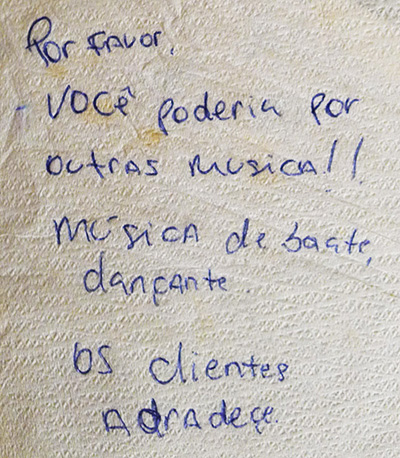 Por FAVOR,
- VOCÊ poderia por
outras musica!!
Música de boate,
dançante.
OS clientes
AGRADeçe.